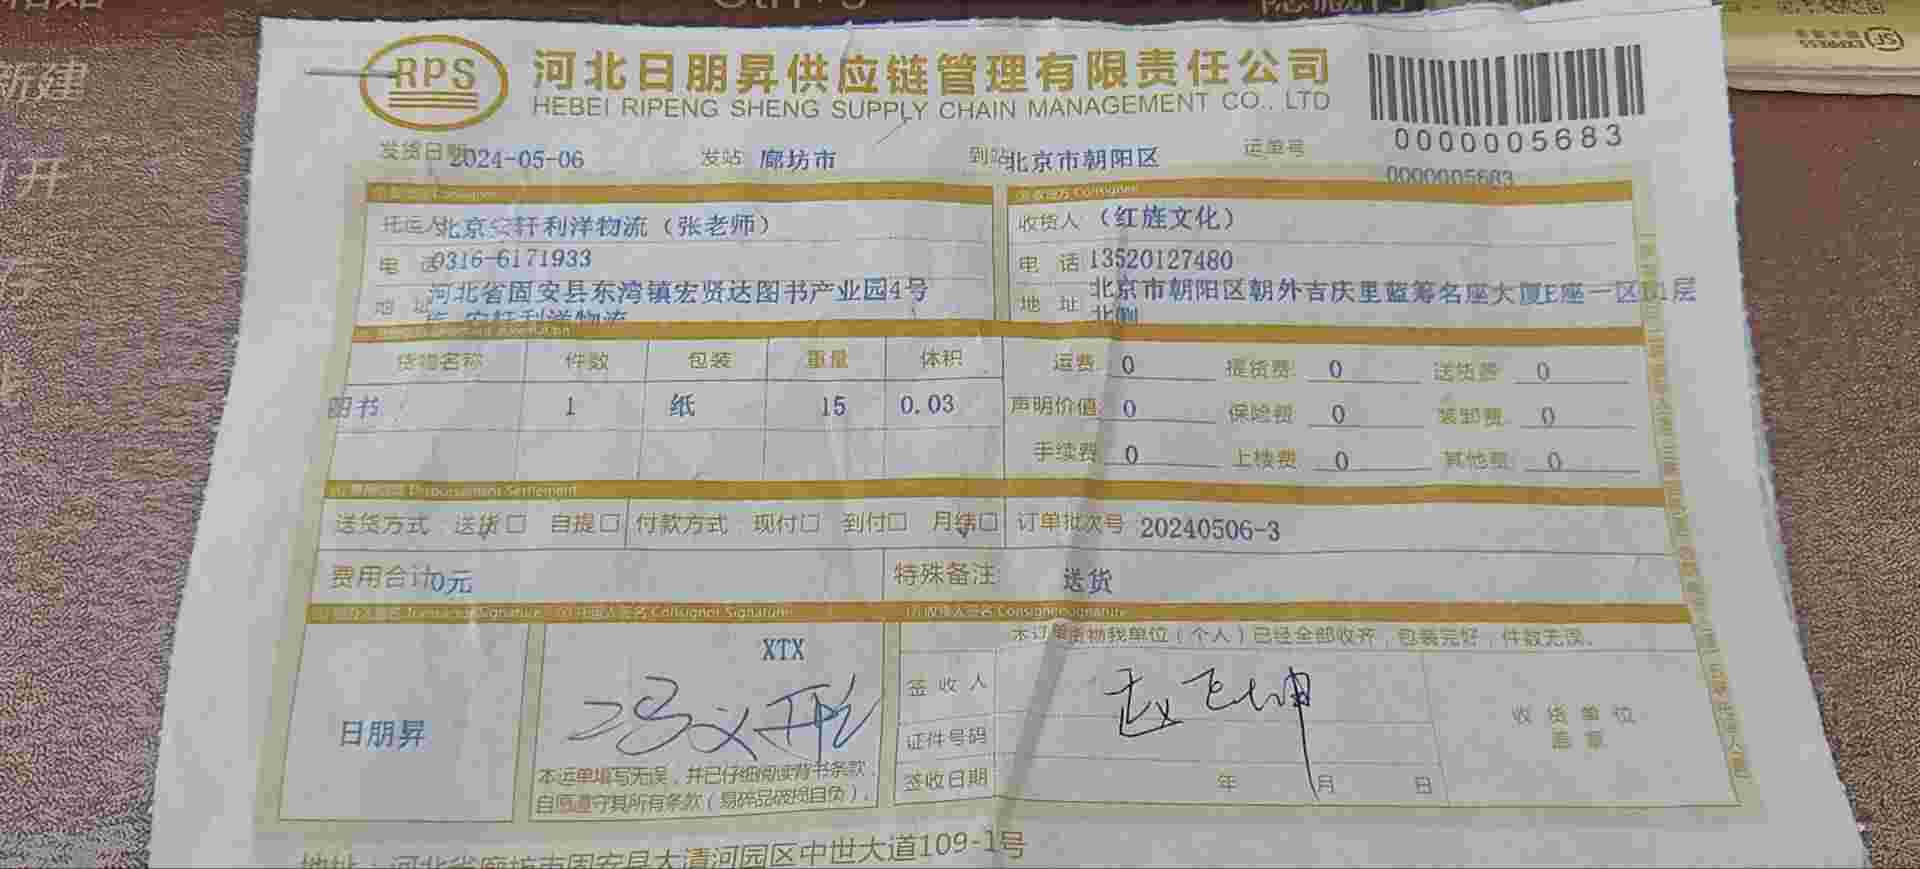 新建
RPS
河北日朋昇供应链管理有限责任公司
HEBEI RIPENG SHENG SUPPLY CHAIN MANAGEMENT CO., LTD
0000005683
发货日期 2024-05-06 发站 廊坊市 到站 北京市朝阳区 运单号 0000005683
托运人 北京安轩利洋物流（张老师） 收货人 （红旌文化）
电话 0316-6171933 电话 13520127480
地址 河北省固安县东湾镇宏贤达图书产业园4号 地址 北京市朝阳区朝外吉庆里蓝筹名座大厦E座一区 层
安轩利洋物流 北侧
货物名称 件数 包装 重量 体积 运费 0 提货费 0 送货费 0
图书 1 纸 15 0.03 声明价值 0 保险费 0 装卸费 0
手续费 0 上楼费 0 其他费 0
Disbursement Settlement
送货方式 送货 自提 付款方式 现付 到付 月结 订单批次号 20240506-3
费用合计 0元 特殊备注 送货
Signature Consigner Signature 收货人签名 Consignee Signature
XTX 本订单货物我单位（个人）已经全部收齐，包装完好，件数无误。
日朋昇 签收人 赵飞坤
证件号码 收货单位
盖章
本运单填写无误，并已仔细阅读背书条款，
自愿遵守其所有条款（易碎品破损自负）。
签收日期 年 月 日
地址：河北省廊坊市固安县大清河园区中世大道109-1号
SF
EXPRESS